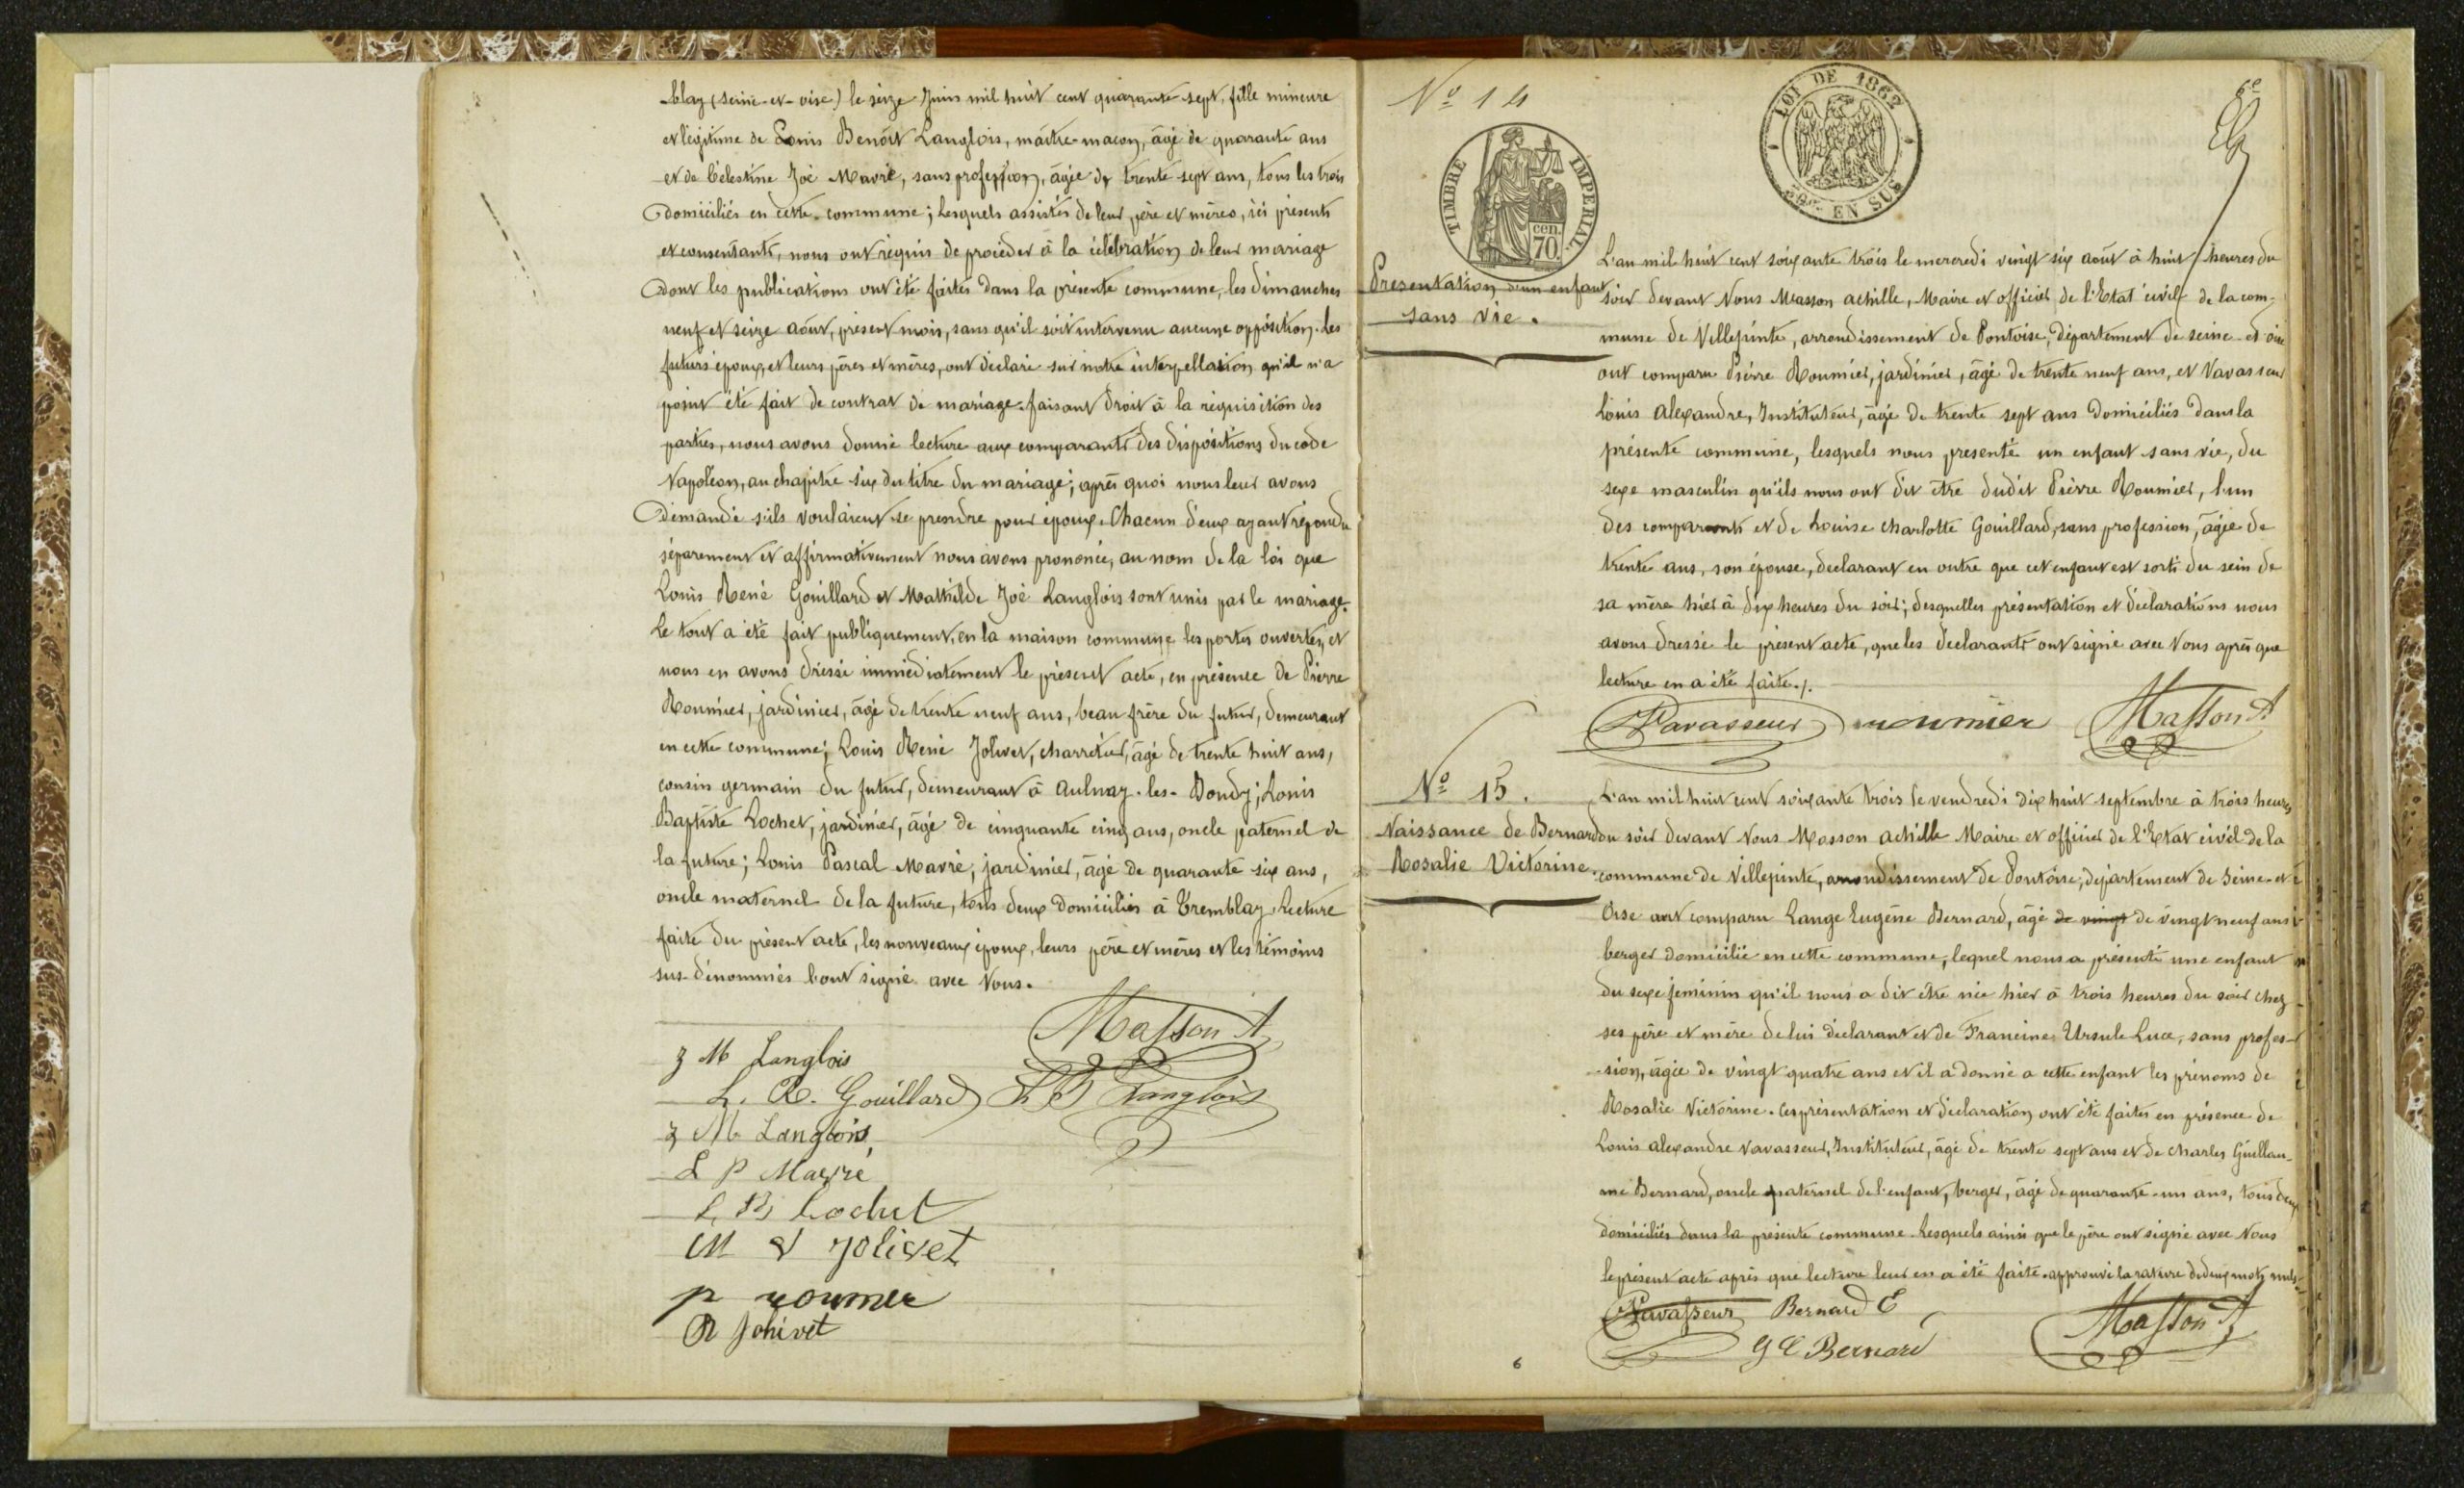 -blay (seine-et-oise) le seize Juin mil huit cent quarante sept, fille mineure
et légitime de Louis Benoît Langlois, maître-maçon, âgé de quarante ans
et de Célestine Zoé Mavré, sans profession, âgée de trente sept ans, tous les trois
domiciliés en cette commune; lesquels assistés de leur père et mères, ici présents
et consentants, nous ont requis de procéder à la célébration de leur mariage
dont les publications ont été faites dans la présente commune, les dimanches
neuf et seize août, présent mois, sans qu'il soit intervenu aucune opposition. Les
futurs époux, et leurs pères et mères, ont déclaré sur notre interpellation qu'il n'a
point été fait de contrat de mariage. faisant droit à la réquisition des
parties, nous avons donné lecture aux comparants des dispositions du code
Napoléon, au chapitre six du titre du mariage; après quoi nous leur avons
demandé s'ils voulaient se prendre pour époux. Chacun d'eux ayant répondu
séparement et affirmativement nous avons prononcé, au nom de la loi que
Louis René Gouillard et Mathilde Zoé Langlois sont unis par le mariage.
Le tout a été fait publiquement, en la maison commune les portes ouvertes, et
nous en avons dressé immédiatement le présent acte, en présence de Pierre
Roumier, jardinier, âgé de trente neuf ans, beau frère du futur, demeurant
en cette commune; Louis René Jolivet, charretier, âgé de trente huit ans,
cousin germain du futur, demeurant à Aulnay-les-Bondy; Louis
Baptiste Lochet, jardinier, âgé de cinquante cinq ans, oncle paternel de
la future; Louis Pascal Mavré, jardinier, âgé de quarante six ans,
oncle maternel de la future, tous deux domiciliés à Tremblay. Lecture
faite du présent acte, les nouveaux époux, leurs père et mères et les témoins
sus-dénommés l'ont signé avec Nous.
Masson A
z M Langlois
L. R. Gouillard L B Langlois
z M Langlois,
L P Mavré
L B Lochet
M V Jolivet
p roumier
R Jolivet
No 14
TIMBRE IMPERIAL
cen. 70
LOI DE 1862
50c. EN SUS
6e
Presentation d'un enfant
sans vie.
L'an mil huit cent soixante trois le mercredi vingt six août à huit heures du
soir devant Nous Masson achille, Maire et officier de l'Etat civil de la com-
mune de Villepinte, arrondissement de Pontoise, département de seine-et-oise
ont comparu Pierre Roumier, jardinier, âgé de trente neuf ans, et Vavasseur
Louis alexandre, Instituteur, âgé de trente sept ans domiciliés dans la
présente commune, lesquels nous présenté un enfant sans vie, du
sexe masculin qu'ils nous ont dit être dudit Pierre Roumier, l'un
des comparants et de Louise charlotte Gouillard, sans profession, âgée de
trente ans, son épouse, declarant en outre que cet enfant est sorti du sein de
sa mère hier à dix heures du soir; desquelles présentation et déclarations nous
avons dressé le présent acte, que les declarants ont signé avec Nous après que
lecture en a été faite./.
Vavasseur roumier Masson A
No 15.
Naissance de Bernard
Rosalie Victorine.
L'an mil huit cent soixante trois le vendredi dix huit septembre à trois heures
du soir devant Nous Masson achille Maire et officier de l'Etat civil de la
commune de Villepinte, arrondissement de Pontoise, département de Seine-et-
Oise ont comparu Lange Eugène Bernard, âgé de vingt de vingt neuf ans
berger domicilié en cette commune, lequel nous a présenté une enfant
du sexe feminin qu'il nous a dit être née hier à trois heures du soir chez
ses père et mère de lui déclarant et de Francine Ursule Luce, sans profes-
-sion, âgée de vingt quatre ans et il a donné a cette enfant les prénoms de
Rosalie Victorine. Ces présentation et déclaration ont été faites en présence de
Louis alexandre Vavasseur, Instituteur, âgé de trente sept ans et de charles Guillau-
me Bernard, oncle paternel de l'enfant, berger, âgé de quarante-un ans, tous deux
domiciliés dans la présente commune. Lesquels ainsi que le père ont signé avec Nous
le présent acte après que lecture leur en a été faite. approuvé la rature de deux mots nuls.
Vavasseur Bernard E
Masson A
G C Bernard
6